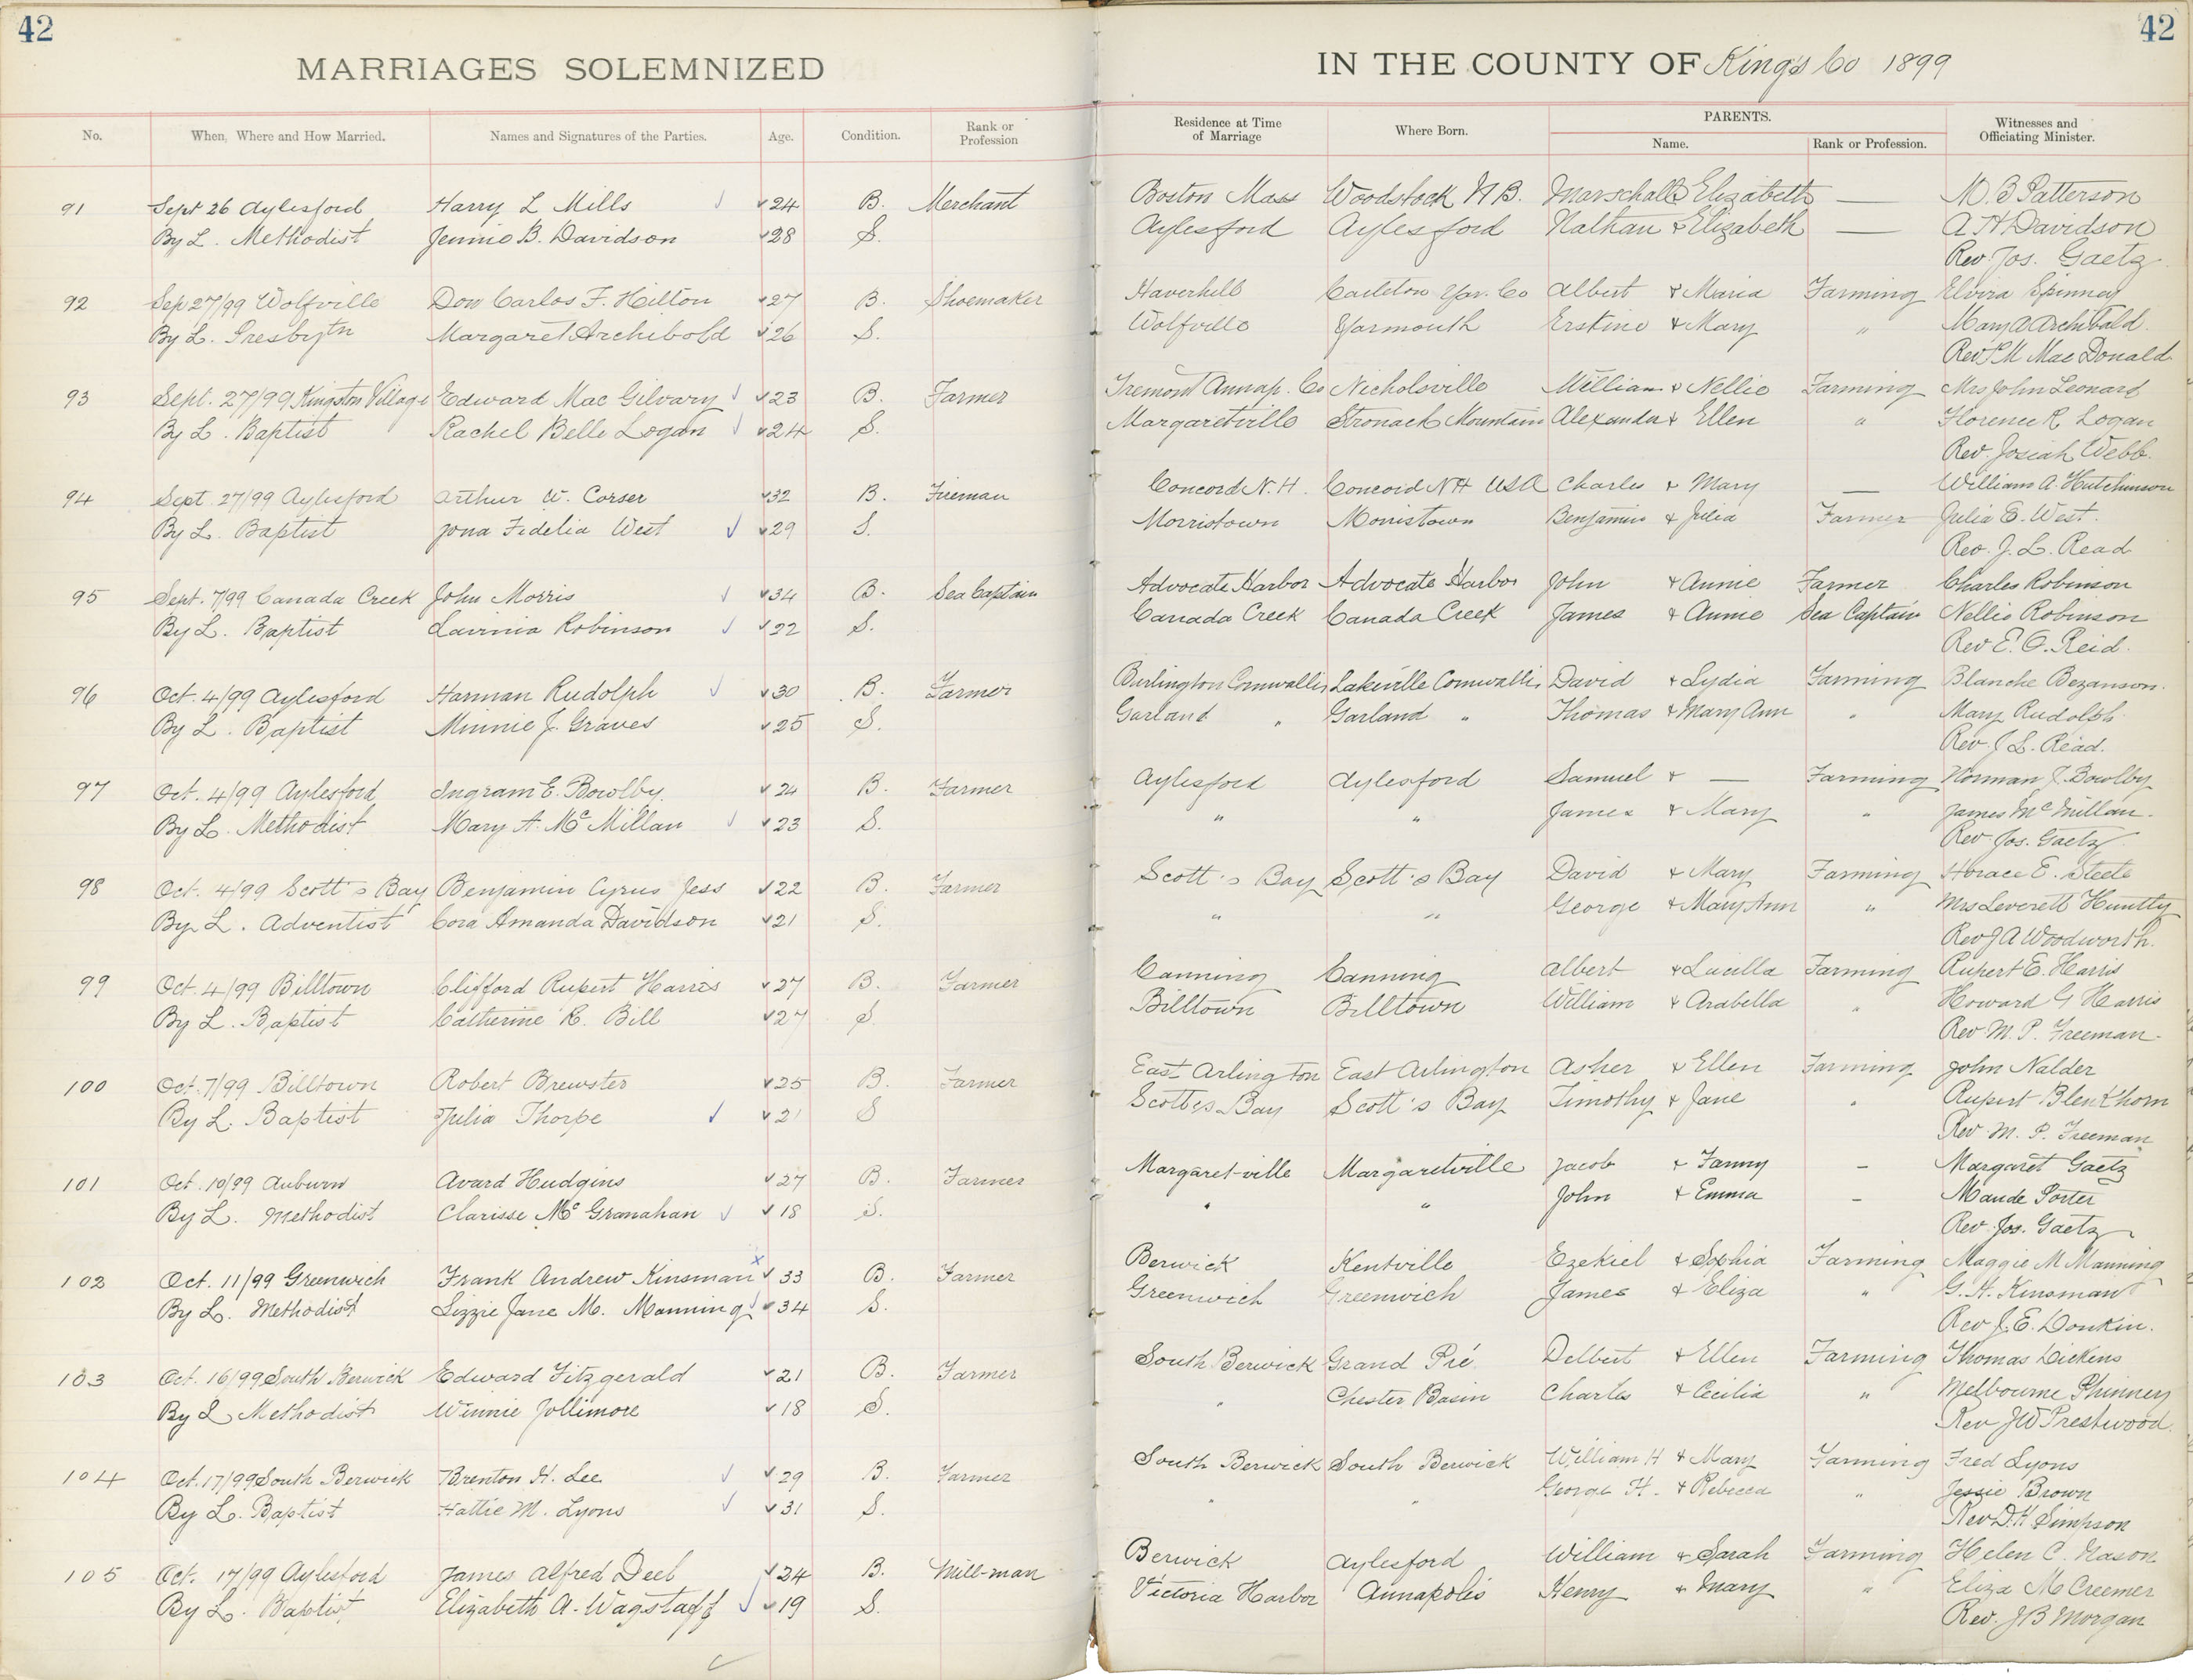 42
MARRIAGES SOLEMNIZED
IN THE COUNTY OF King's Co 1899
42
No. When, Where and How Married. Names and Signatures of the Parties. Age. Condition. Rank or Profession Residence at Time of Marriage Where Born. PARENTS. Name. Rank or Profession. Witnesses and Officiating Minister.
91 Sept 26 Aylesford Harry L Mills 24 B. Merchant Boston Mass Woodstock N B. Marschall & Elizabeth — M. B Patterson
By L. Methodist Jennie B. Davidson 28 S. Aylesford Aylesford Nathan & Elizabeth — A H Davidson
Rev. Jos. Gaetz
92 Sep 27/99 Wolfville Don Carlos F. Hilton 27 B. Shoemaker Haverhill Carleton Yar. Co Albert & Maria Farming Elvira Spinney
By L. Presbytn Margaret Archibold 26 S. Wolfville Yarmouth Erskine & Mary " Mary A Archibald.
Rev P.M Mac Donald
93 Sept. 27/99 Kingston Village Edward Mac Gilvary 23 B. Farmer Tremont Annap. Co Nicholsville William & Nellie Farming Mrs John Leonard
By L. Baptist Rachel Belle Logan 24 S. Margaretville Stronach Mountain Alexander & Ellen " Florence R Logan
Rev. Josiah Webb.
94 Sept. 27/99 Aylesford Arthur W. Corser 32 B. Fireman Concord N. H. Concord NH USA Charles & Mary — William A. Hutchinson
By L. Baptist Jona Fidelia West 29 S. Morristown Morristown Benjamin & Julia Farmer Julia E. West.
Rev. J. L. Read
95 Sept. 7/99 Canada Creek John Morris 34 B. Sea Captain Advocate Harbor Advocate Harbor John & Annie Farmer Charles Robinson
By L. Baptist Lavinia Robinson 22 S. Canada Creek Canada Creek James & Annie Sea Captain Nellie Robinson
Rev E. O. Reid.
96 Oct. 4/99 Aylesford Harman Rudolph 30 B. Farmer Burlington Cornwallis Lakeville Cornwallis David & Lydia Farming Blanche Bezanson.
By L. Baptist Minnie J. Graves 25 S. Garland " Garland " Thomas & Mary Ann " Mary Rudolph
Rev. J L. Read.
97 Oct. 4/99 Aylesford Ingram E. Bowlby. 24 B. Farmer Aylesford Aylesford Samuel & — Farming Norman J. Bowlby
By L. Methodist Mary A. McMillan 23 S. " " James & Mary " James McMillan.
Rev. Jos. Gaetz
98 Oct. 4/99 Scott's Bay Benjamin Cyrus Jess 22 B. Farmer Scott's Bay Scott's Bay David & Mary Farming Horace E. Steele
By L. Adventist Cora Amanda Davidson 21 S. " " George & Mary Ann " Mrs Leverett Huntly
Rev J A Woodworth.
99 Oct. 4/99 Billtown Clifford Rupert Harris 27 B. Farmer Canning Canning Albert & Lucilla Farming Rupert E. Harris
By L. Baptist Catherine R. Bill 27 S. Billtown Billtown William & Arabella " Howard G Harris
Rev. M. P. Freeman.
100 Oct. 7/99 Billtown Robert Brewster 25 B. Farmer East Arlington East Arlington Asher & Ellen Farming John Nalder
By L. Baptist Julia Thorpe 21 S Scott's Bay Scott's Bay Timothy & Jane " Rupert Blenkhorn
Rev. M. P. Freeman
101 Oct. 10/99 Auburn Avard Hudgins 27 B. Farmer Margaret-ville Margaretville Jacob & Fanny — Margaret Gaetz
By L. Methodist Clarisse McGranahan 18 S. " " John & Emma — Maude Porter
Rev. Jos. Gaetz
102 Oct. 11/99 Greenwich Frank Andrew Kinsman 33 B. Farmer Berwick Kentville Ezekiel & Sophia Farming Maggie M Manning
By L. Methodist Lizzie Jane M. Manning 34 S. Greenwich Greenwich James & Eliza " G. H. Kinsman
Rev J. E. Donkin.
103 Oct. 16/99 South Berwick Edward Fitzgerald 21 B. Farmer South Berwick Grand Pré Delbert & Ellen Farming Thomas Dickens
By L Methodist Winnie Jollimore 18 S. " Chester Basin Charles & Cecilia " Melbourne Phinney
Rev J W Prestwood.
104 Oct. 17/99 South Berwick Brenton H. Lee 29 B. Farmer South Berwick South Berwick William H & Mary Farming Fred Lyons
By L. Baptist Hattie M. Lyons 31 S. " " George H. & Rebecca " Jessie Brown
Rev D. H. Simpson
105 Oct. 17/99 Aylesford James Alfred Deel 24 B. Mill-man Berwick Aylesford William & Sarah Farming Helen C. Nason
By L. Baptist Elizabeth A. Wagstaff 19 S. Victoria Harbor Annapolis Henry & Mary " Eliza M Creemer
Rev. J B Morgan